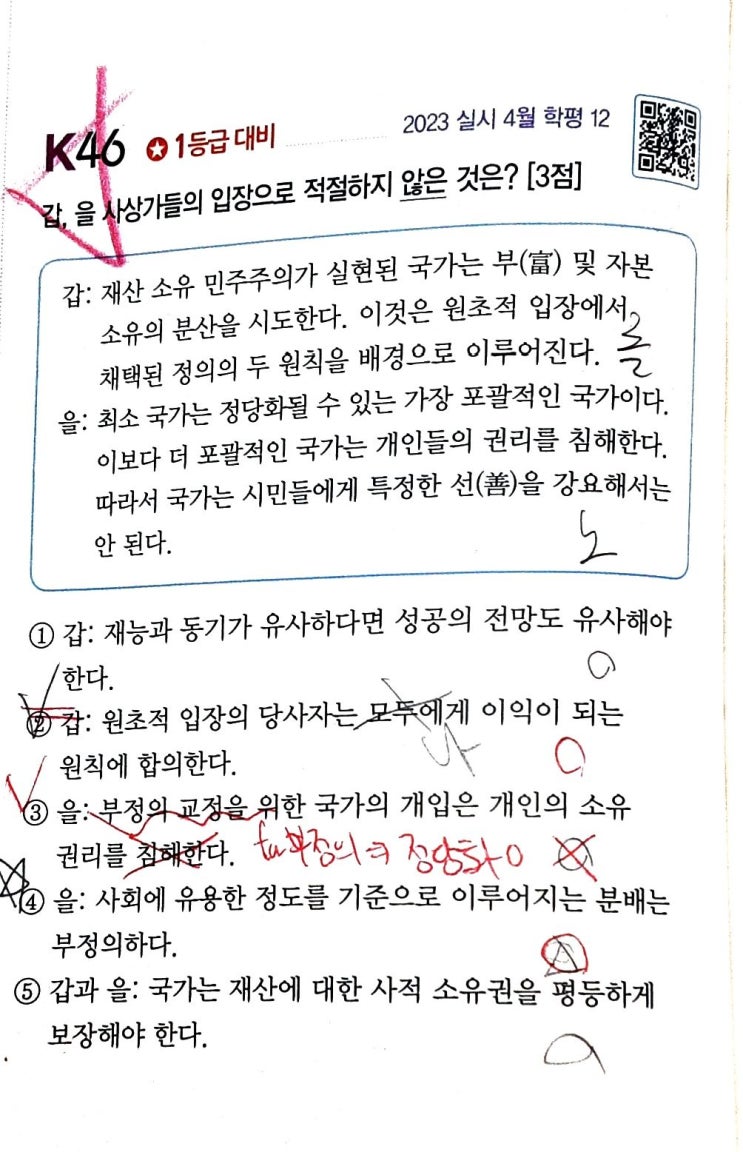 K46 ★ 1등급 대비 2023 실시 4월 학평 12
갑, 을 사상가들의 입장으로 적절하지 않은 것은? [3점]
갑: 재산 소유 민주주의가 실현된 국가는 부(富) 및 자본
소유의 분산을 시도한다. 이것은 원초적 입장에서
채택된 정의의 두 원칙을 배경으로 이루어진다. 롤
을: 최소 국가는 정당화될 수 있는 가장 포괄적인 국가이다.
이보다 더 포괄적인 국가는 개인들의 권리를 침해한다.
따라서 국가는 시민들에게 특정한 선(善)을 강요해서는
안 된다. 노
① 갑: 재능과 동기가 유사하다면 성공의 전망도 유사해야
한다.
② 갑: 원초적 입장의 당사자는 모두에게 이익이 되는
원칙에 합의한다. 나
③ 을: 부정의 교정을 위한 국가의 개입은 개인의 소유
권리를 침해한다.
④ 을: 사회에 유용한 정도를 기준으로 이루어지는 분배는
부정의하다.
⑤ 갑과 을: 국가는 재산에 대한 사적 소유권을 평등하게
보장해야 한다.